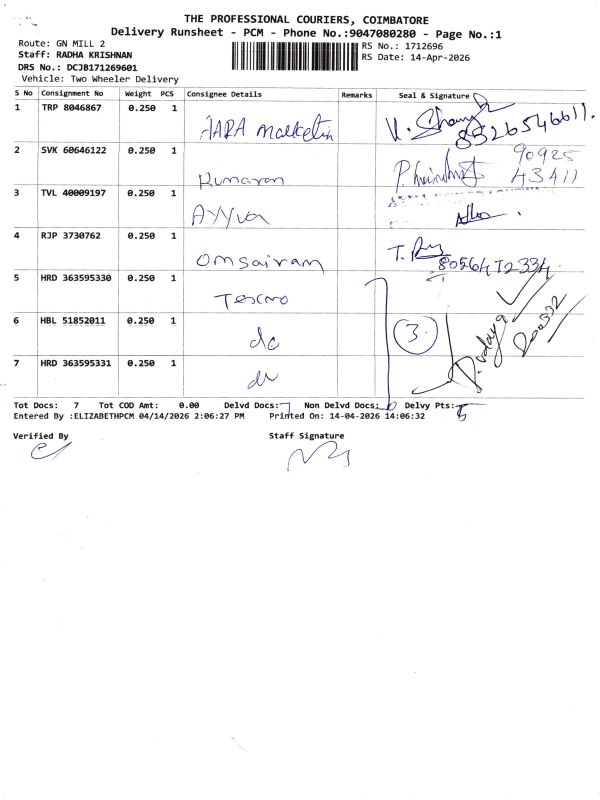 THE PROFESSIONAL COURIERS, COIMBATORE
Delivery Runsheet - PCM - Phone No.:9047080280 - Page No.:1
Route: GN MILL 2
Staff: RADHA KRISHNAN
DRS No.: DCJB171269601
Vehicle: Two Wheeler Delivery
RS No.: 1712696
RS Date: 14-Apr-2026
S No Consignment No Weight PCS Consignee Details Remarks Seal & Signature
1 TRP 8046867 0.250 1
2 SVK 60646122 0.250 1 Kumaran 90925 43411
3 TVL 40009197 0.250 1 Ayya
4 RJP 3730762 0.250 1 Omsairam 8056472334
5 HRD 363595330 0.250 1
6 HBL 51852011 0.250 1 do 3
7 HRD 363595331 0.250 1 do
Tot Docs: 7 Tot COD Amt: 0.00 Delvd Docs: 7 Non Delvd Docs: 0 Delvy Pts: 5
Entered By :ELIZABETHPCM 04/14/2026 2:06:27 PM Printed On: 14-04-2026 14:06:32
Verified By Staff Signature